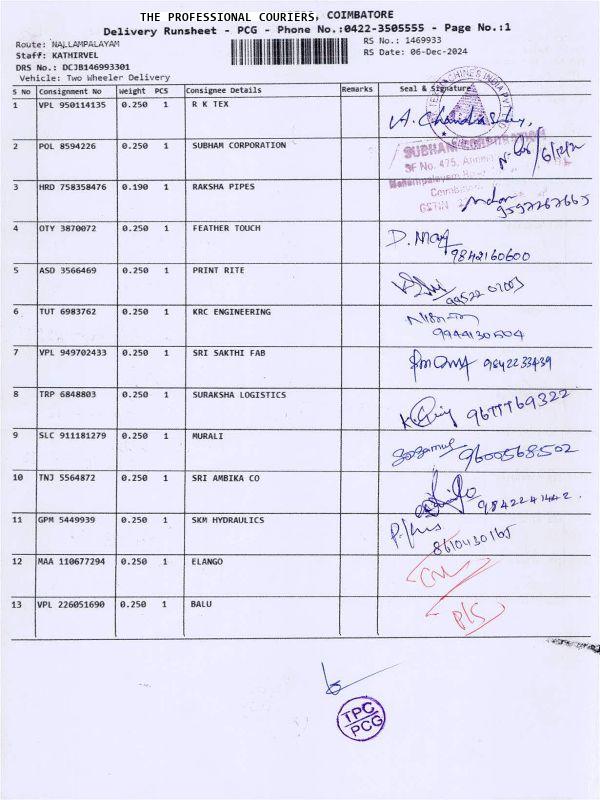 THE PROFESSIONAL COURIERS, COIMBATORE
Delivery Runsheet - PCG - Phone No.:0422-3505555 - Page No.:1
Route: NALLAMPALAYAM
RS No.: 1469933
Staff: KATHIRVEL
RS Date: 06-Dec-2024
DRS No.: DCJB146993301
Vehicle: Two Wheeler Delivery
S No Consignment No Weight PCS Consignee Details Remarks Seal & Signature
1 VPL 950114135 0.250 1 R K TEX
2 POL 8594226 0.250 1 SUBHAM CORPORATION
SUBHAM
SF No. 475,
3 HRD 758358476 0.190 1 RAKSHA PIPES
GSTIN
4 OTY 3870072 0.250 1 FEATHER TOUCH D. Mary
9842160600
5 ASD 3566469 0.250 1 PRINT RITE
6 TUT 6983762 0.250 1 KRC ENGINEERING
9944130504
7 VPL 949702433 0.250 1 SRI SAKTHI FAB 9842233439
8 TRP 6848803 0.250 1 SURAKSHA LOGISTICS 9677769322
9 SLC 911181279 0.250 1 MURALI 9600568502
10 TNJ 5564872 0.250 1 SRI AMBIKA CO
9842241442.
11 GPM 5449939 0.250 1 SKM HYDRAULICS
8610430165
12 MAA 110677294 0.250 1 ELANGO
13 VPL 226051690 0.250 1 BALU
TPC
PCG